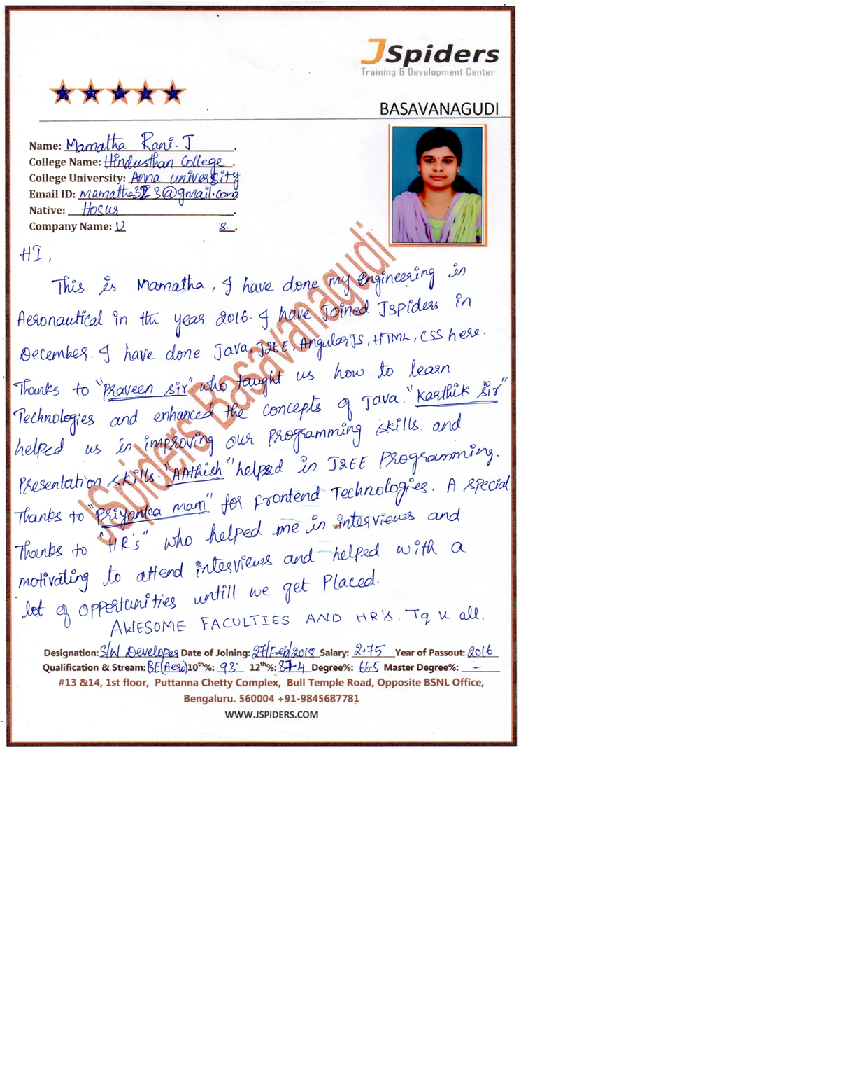 JSpiders
Training & Development Center
BASAVANAGUDI
Name: Mamatha Rani. J
College Name: Hindusthan College.
College University: Anna university
Email ID:
Native: Hosur
Company Name:
HI,
This is Mamatha, I have done my Engineering in
Aeronautical in the year 2016. I have Joined Jspiders in
December. I have done Java, J2EE, AngularJS, HTML, CSS here.
Thanks to "Praveen sir" who taught us how to learn
Technologies and enhanced the concepts of Java. "Karthik Sir"
helped us in improving our Programming skills and
Presentation skills. helped in J2EE Programming.
Thanks to "Priyanka mam" for Frontend Technologies. A special
Thanks to "HR's" who helped me in interviews and
motivating to attend interviews and helped with a
lot of opportunities untill we get Placed.
AWESOME FACULTIES AND HR's. Tq u all.
Designation: S/W Developer Date of Joining: Salary: 2.75 Year of Passout: 2016
Qualification & Stream: BE(Aero) 10th%: 93 12th%: 87.4 Degree%: Master Degree%: -
#13 &14, 1st floor, Puttanna Chetty Complex, Bull Temple Road, Opposite BSNL Office,
Bengaluru. 560004 +91-9845687781
WWW.JSPIDERS.COM
JSpiders Basavanagudi